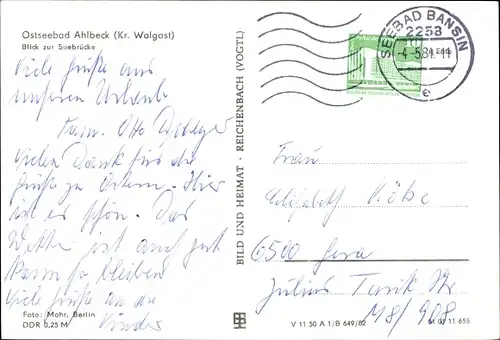 Ostseebad Ahlbeck (Kr. Wolgast)
Blick zur Seebrücke
Viele Grüße aus
unserem Urlaub
Fam. Otto
Vielen Dank für die
Grüße zu Ostern. Hier
ist es schön. Das
Wetter ist auch gut
kann so bleiben
Viele Grüße an die
Kinder
Foto: Mohr, Berlin
DDR 0,25 M
BILD UND HEIMAT · REICHENBACH (VOGTL)
SEEBAD BANSIN
2253
e
Frau
Elisabeth
6500 Gera
Julius Str
M8/908
V 11 50 A 1/B 649/82
01 11 655